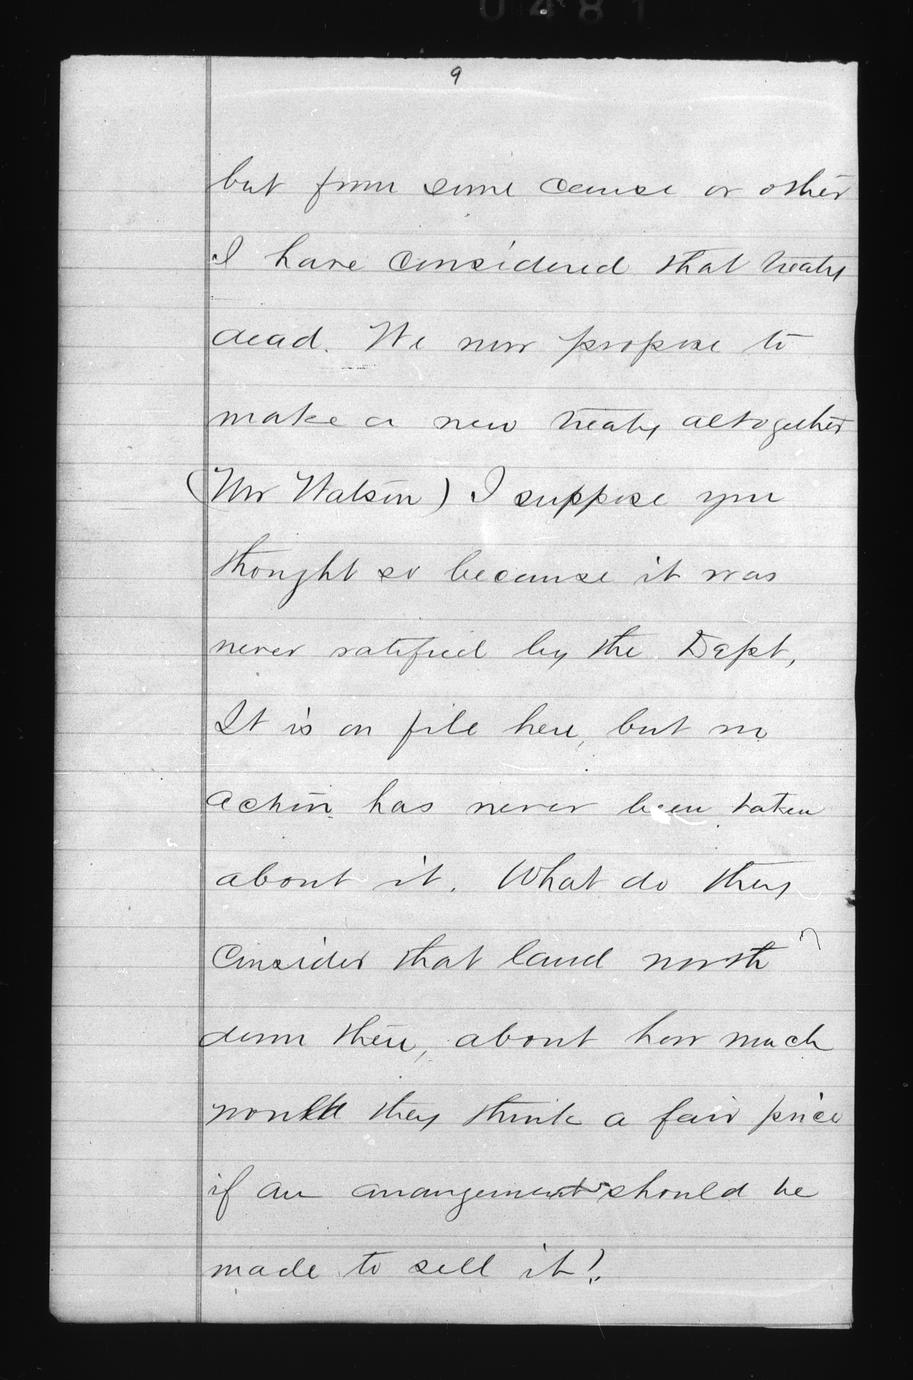 0481
9
but from some cause or other
I have considered that treaty
dead. We now propose to
make a new treaty altogether
(Mr Watson) I suppose you
thought so because it was
never ratified by the Dept,
It is on file here, but no
action has never been taken
about it. What do they
consider that land worth?
down there, about how much
would they think a fair price
if an arrangement should be
made to sell it?